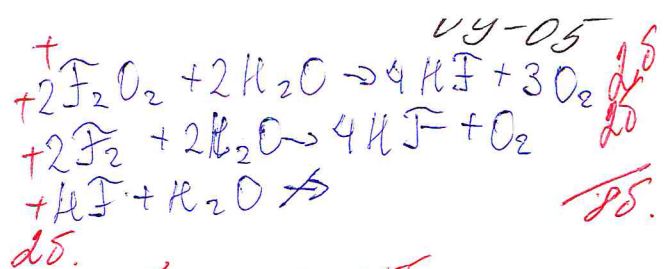 УУ-05
+
+2F₂O₂ + 2H₂O → 4HF + 3O₂ 2б
+2F₂ + 2H₂O → 4HF + O₂ 2б
+HF + H₂O ↛
8б.
2б.